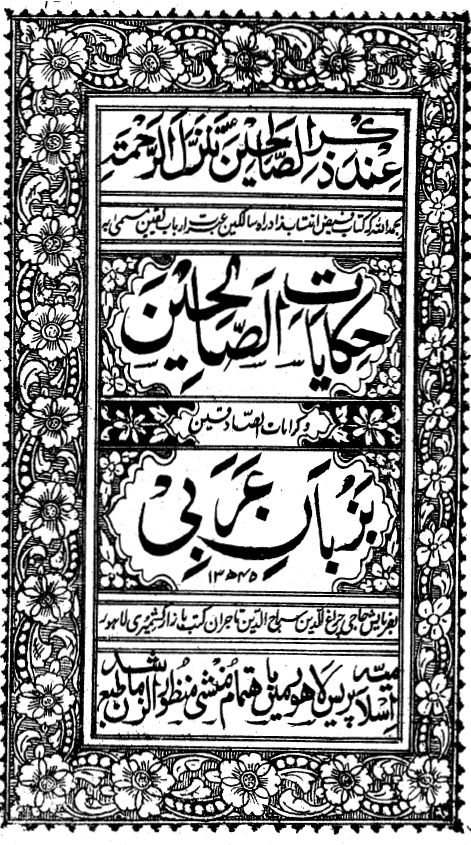 عند ذکر الصالحین تنزل الرحمۃ
بحمد اللہ کہ کتاب فیض انتساب زاد راہ سالکین عبرت ارباب یقین مسمی بہ
حِکایاتِ الصّالِحِیْنَ
وکرامات الصادقین
بَزُبانِ عَرَبِی
۱۳۴۵ھ
بفرمایش حاجی چراغ الدین سراج الدین تاجران کتب بازار کشمیری لاہور
اسلامیہ پریس لاہور میں باہتمام منشی منظور الزمان طبع شد